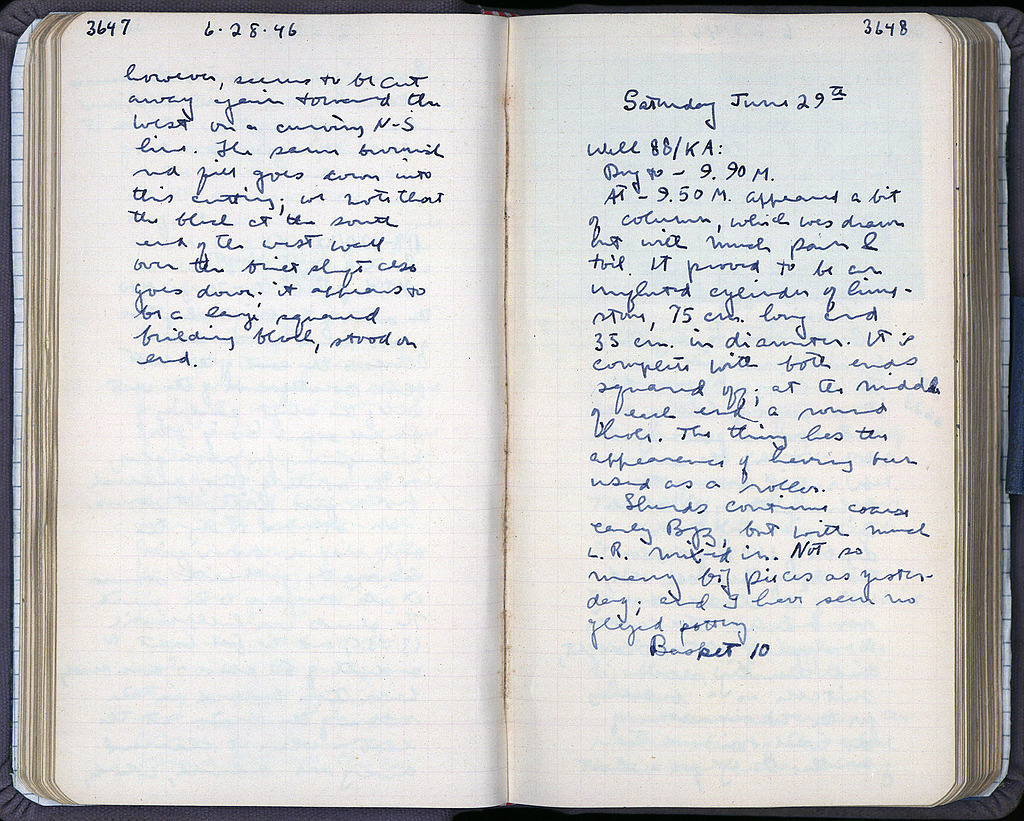 3647 6·28·46
however, seems to be cut
away again toward the
West on a curving N-S
line. The same brownish
red fill goes down into
this cutting; we note that
the block at the south
end of the west wall
over the brick shaft also
goes down; it appears to
be a large squared
building block, stood on
end.
3648
Saturday June 29th
Well 88/KA:
Dug to - 9.90 M.
At - 9.50 M. appeared a bit
of column, which was drawn
out with much pain &
toil. It proved to be an
unfluted cylinder of lime-
stone, 75 cm. long and
35 cm. in diameter. It is
complete with both ends
squared off; at the middle
of each end, a round
hole. The thing has the
appearance of having been
used as a roller.
Sherds continue coarse
early Byz, but with much
L.R. mixed in. Not so
many big pieces as yester-
day; and I have seen no
glazed pottery.
Basket 10